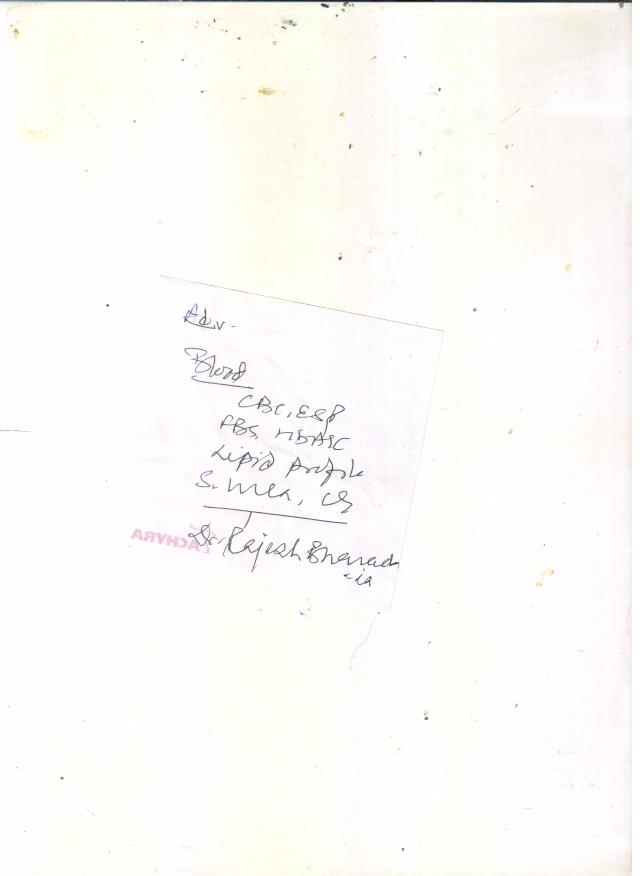 Adv.
Blood
CBC, ESR
FBS, HbA1C
Lipid Profile
S. Urea, Cr
Dr. Rajesh
ZACHYRA